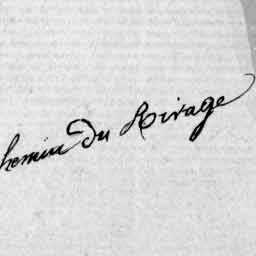 hemin du Rivage